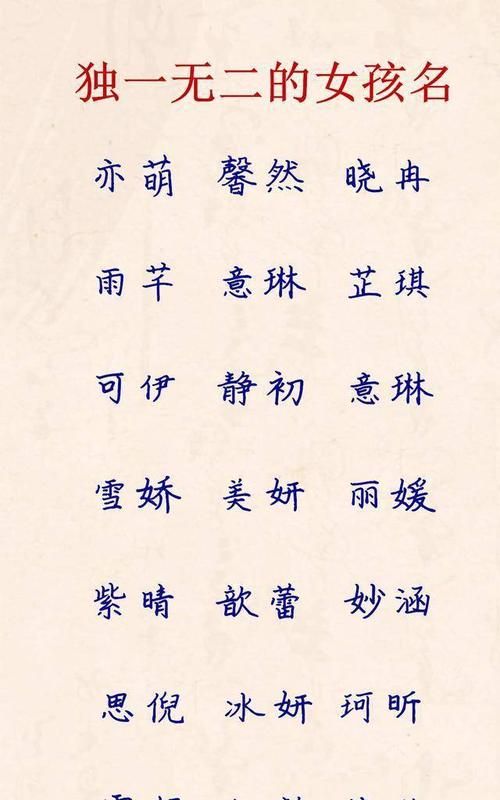 独一无二的女孩名
亦萌 馨然 晓冉
雨芊 意琳 芷琪
可伊 静初 意琳
雪娇 美妍 丽媛
紫晴 歆蕾 妙涵
思倪 冰妍 珂昕